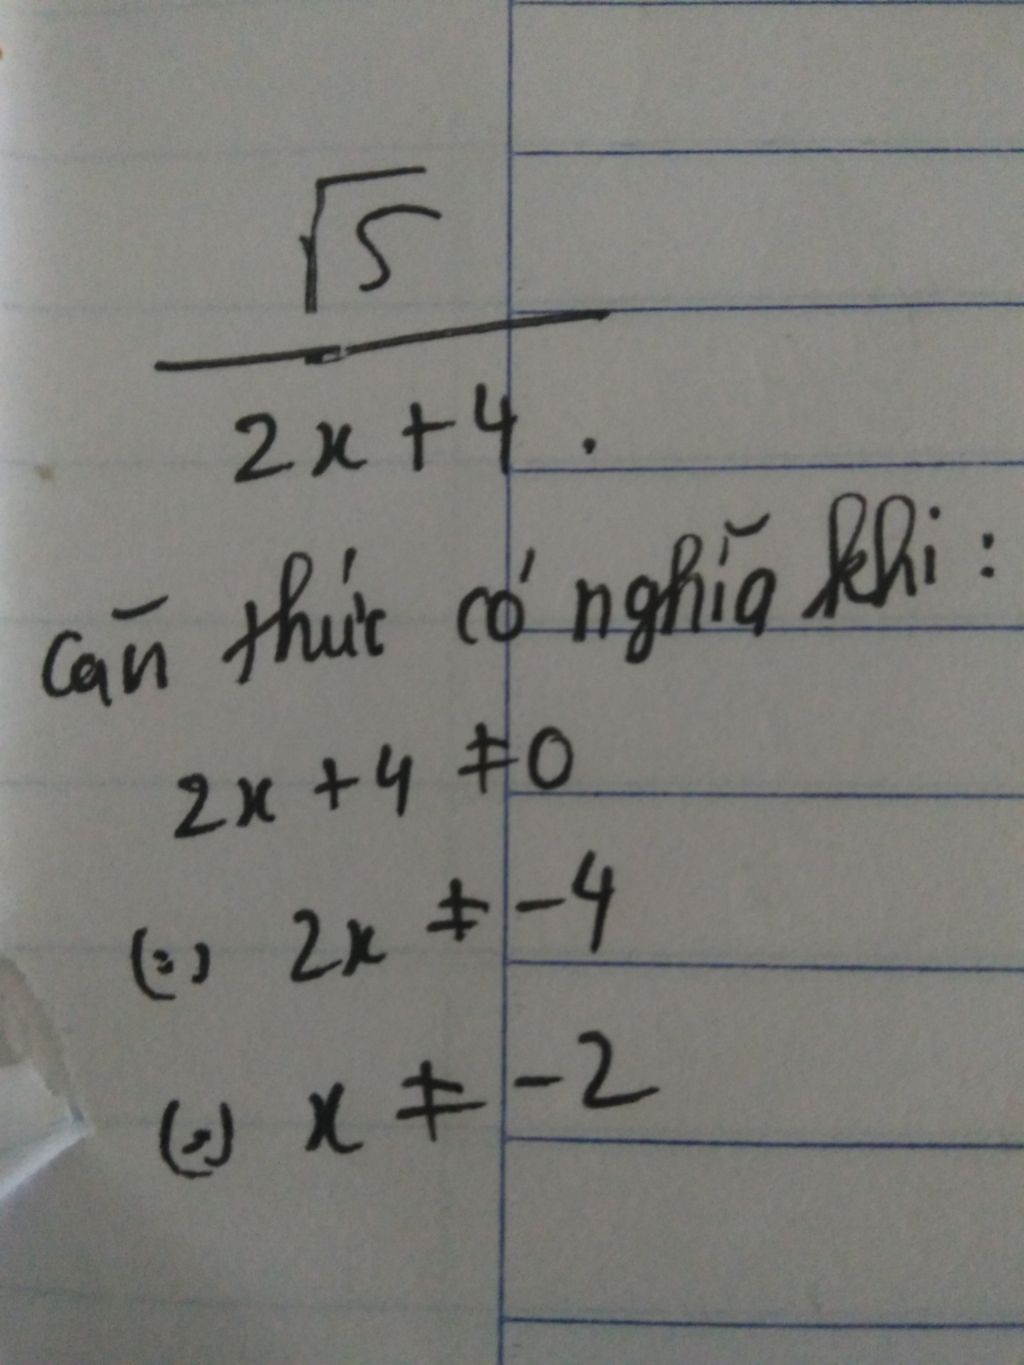 √5
2x + 4 .
Căn thức có nghĩa khi :
2x + 4 ≠ 0
(=) 2x ≠ -4
(=) x ≠ -2